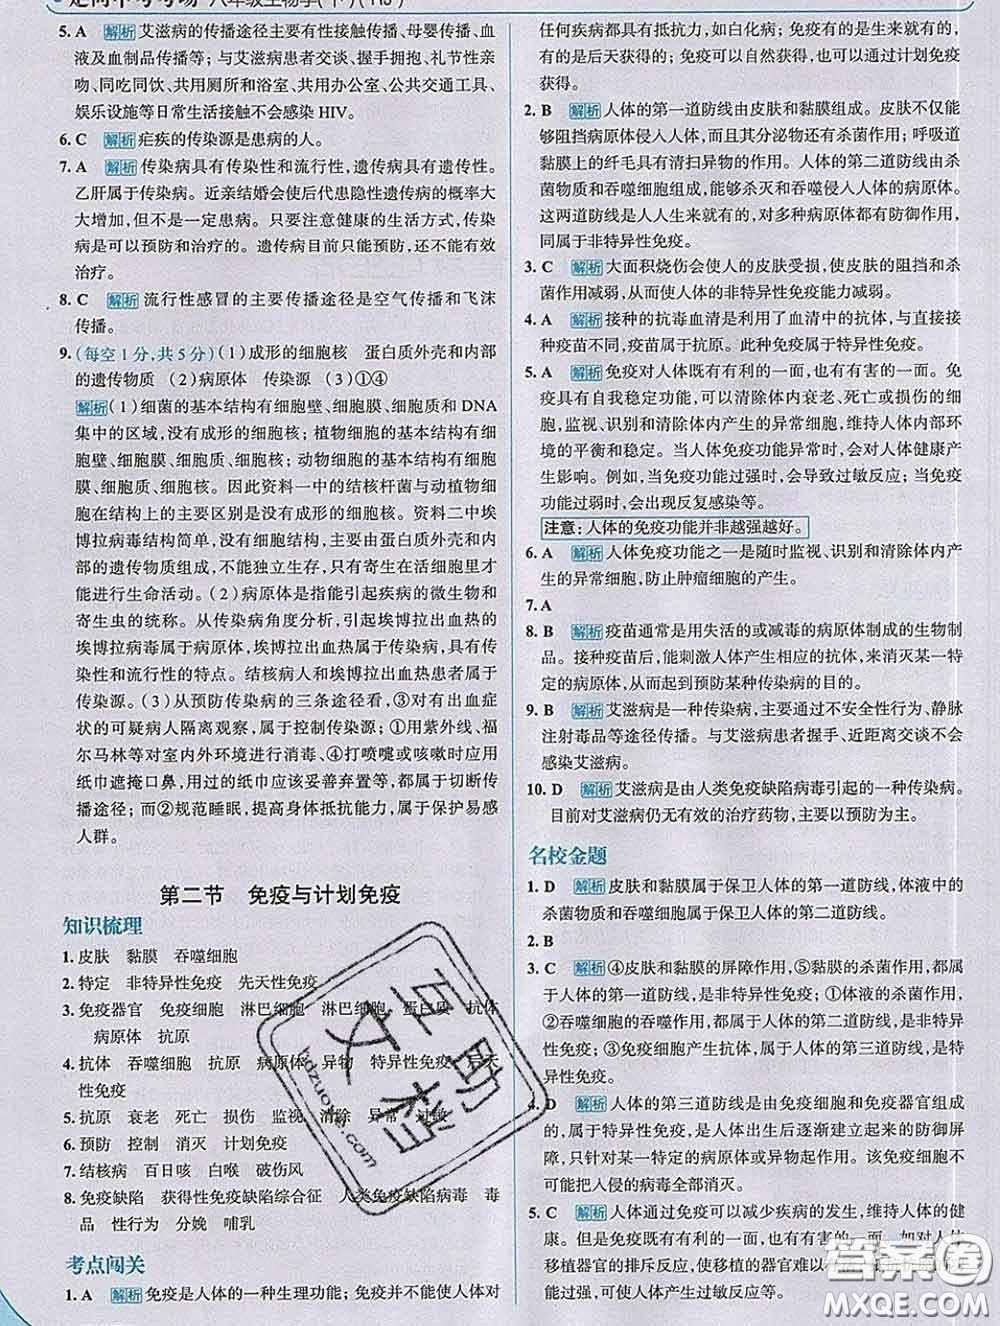 走向中考考场·八年级生物学(下)(RJ)
5. A 解析 艾滋病的传播途径主要有性接触传播、母婴传播、血
液及血制品传播等；与艾滋病患者交谈、握手拥抱、礼节性亲
吻、同吃同饮、共用厕所和浴室、共用办公室、公共交通工具、
娱乐设施等日常生活接触不会感染 HIV。
6. C 解析 疟疾的传染源是患病的人。
7. A 解析 传染病具有传染性和流行性，遗传病具有遗传性。
乙肝属于传染病。近亲结婚会使后代患隐性遗传病的概率大
大增加，但不是一定患病。只要注意健康的生活方式，传染
病是可以预防和治疗的。遗传病目前只能预防，还不能有效
治疗。
8. C 解析 流行性感冒的主要传播途径是空气传播和飞沫
传播。
9. (每空1分,共5分)(1)成形的细胞核 蛋白质外壳和内部
的遗传物质 (2)病原体 传染源 (3)①④
解析 (1)细菌的基本结构有细胞壁、细胞膜、细胞质和 DNA
集中的区域，没有成形的细胞核；植物细胞的基本结构有细
胞壁、细胞膜、细胞质、细胞核；动物细胞的基本结构有细胞
膜、细胞质、细胞核。因此资料一中的结核杆菌与动植物细
胞在结构上的主要区别是没有成形的细胞核。资料二中埃
博拉病毒结构简单，没有细胞结构，由蛋白质外壳和内部
的遗传物质组成，不能独立生存，只有寄生在活细胞里才能
进行生命活动。(2)病原体是指引起疾病的微生物和
寄生虫的统称。从传染病角度分析，引起埃博拉出血热的
埃博拉病毒属于病原体，埃博拉出血热属于传染病，具有传
染性和流行性的特点。结核病人和埃博拉出血热患者属于
传染源。(3)从预防传染病的三条途径看，③对有出血症
状的可疑病人隔离观察，属于控制传染源；①用紫外线、福
尔马林等对室内外环境进行消毒、④打喷嚏或咳嗽时应用
纸巾遮掩口鼻，用过的纸巾应该妥善弃置等，都属于切断传
播途径；而②规范睡眠，提高身体抵抗能力，属于保护易感
人群。
第二节 免疫与计划免疫
知识梳理
1. 皮肤 黏膜 吞噬细胞
2. 特定 非特异性免疫 先天性免疫
3. 免疫器官 免疫细胞 淋巴细胞 淋巴细胞 蛋白质 抗体
病原体 抗原
4. 抗体 吞噬细胞 抗原 病原体 异物 特异性免疫 后天
性免疫
5. 抗原 衰老 死亡 损伤 监视 清除 异常 过敏
6. 预防 控制 消灭 计划免疫
7. 结核病 百日咳 白喉 破伤风
8. 免疫缺陷 获得性免疫缺陷综合征 人类免疫缺陷病毒 毒
品 性行为 分娩 哺乳
考点闯关
1. A 解析 免疫是人体的一种生理功能；免疫并不能使人体对
任何疾病都具有抵抗力，如白化病；免疫有的是生来就有的，
有的是后天获得的；有的免疫可以通过计划免疫
获得。
2. B 解析 人体的第一道防线由皮肤和黏膜组成。皮肤不仅能
够阻挡病原体侵入人体，而且其分泌物还有杀菌作用；呼吸道
黏膜上的纤毛具有清扫异物的作用。人体的第二道防线由杀
菌物质和吞噬细胞组成，能够杀灭和吞噬侵入人体的病原体。
这两道防线是人人生来就有的，对多种病原体都有防御作用，
同属于非特异性免疫。
3. C 解析 大面积烧伤会使人的皮肤受损，使皮肤的阻挡和杀
菌作用减弱，从而使人体的非特异性免疫能力减弱。
4. A 解析 接种的抗毒血清是利用了血清中的抗体，与
接种疫苗不同，疫苗属于抗原。此种免疫属于特异性免疫。
5. A 解析 免疫对人体既有有利的一面，也有有害的一面。免
疫具有自我稳定功能，可以清除体内衰老、死亡或损伤的细
胞，监视、识别和清除体内产生的异常细胞，维持人体内部环
境的平衡和稳定。当人体免疫功能异常时，会对人体健康产
生影响。例如，当免疫功能过强时，会导致过敏反应；当免疫
功能过弱时，会出现反复感染等。
注意：人体的免疫功能并非越强越好。
6. A 解析 人体免疫功能之一是随时监视、识别和清除体内产
生的异常细胞，防止肿瘤细胞的产生。
7. A
8. B 解析 疫苗通常是用失活的或减毒的病原体制成的生物制
品。接种疫苗后，能刺激人体产生相应的抗体，来消灭某一特
定的病原体，从而起到预防某种传染病的目的。
9. B 解析 艾滋病是一种传染病，主要通过不安全性行为、静脉
注射毒品等途径传播。与艾滋病患者握手、近距离交谈不会
感染艾滋病。
10. D 解析 艾滋病是由人类免疫缺陷病毒引起的一种传染病。
目前对艾滋病仍无有效的治疗药物，主要以预防为主。
名校金题
1. D 解析 皮肤和黏膜属于保卫人体的第一道防线，体液中的
杀菌物质和吞噬细胞属于保卫人体的第二道防线。
2. B
3. C 解析 ④皮肤和黏膜的屏障作用，⑤黏膜的杀菌作用，都属
于人体的第一道防线，是非特异性免疫；①体液的杀菌作用，
②吞噬细胞的吞噬作用，都属于人体的第二道防线，是非特异
性免疫；③免疫细胞产生抗体，属于人体的第三道防线，是特
异性免疫。
4. D 解析 人体的第三道防线是由免疫细胞和免疫器官组成
的，属于特异性免疫，是人体出生后逐渐建立起来的防御屏
障，只针对某一特定的病原体或异物起作用。该免疫细胞不
可能把入侵的病毒全部消灭。
5. C 解析 人体通过免疫可以减少疾病的发生，维持人体的健
康。但是免疫既有有利的一面，也有有害的一面，如人体对
移植器官的排斥反应，使移植的器官难以
能过强，可使人体产生过敏反应等。
互助文档
hdzuoye.com
答案圈
MXQE.COM